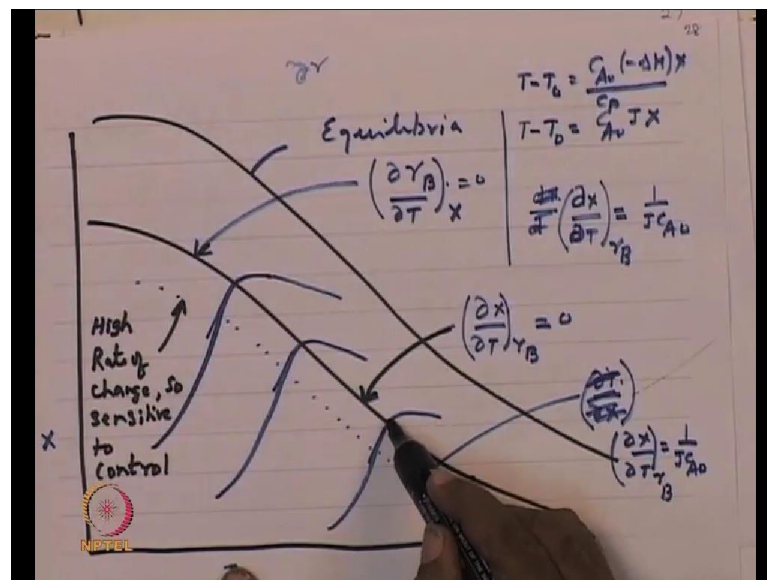 28
T-T₀ = C_A₀ (-ΔH) X / C_P
T-T₀ = C_A₀ J X
Equilibria
(∂r_B/∂T)_X = 0
(∂X/∂T)_r_B = 1/JC_A0
High
Rate of
change, so
sensitive
to
control
(∂X/∂T)_r_B = 0
(∂X/∂T)_r_B = 1/JC_A0
X
NPTEL